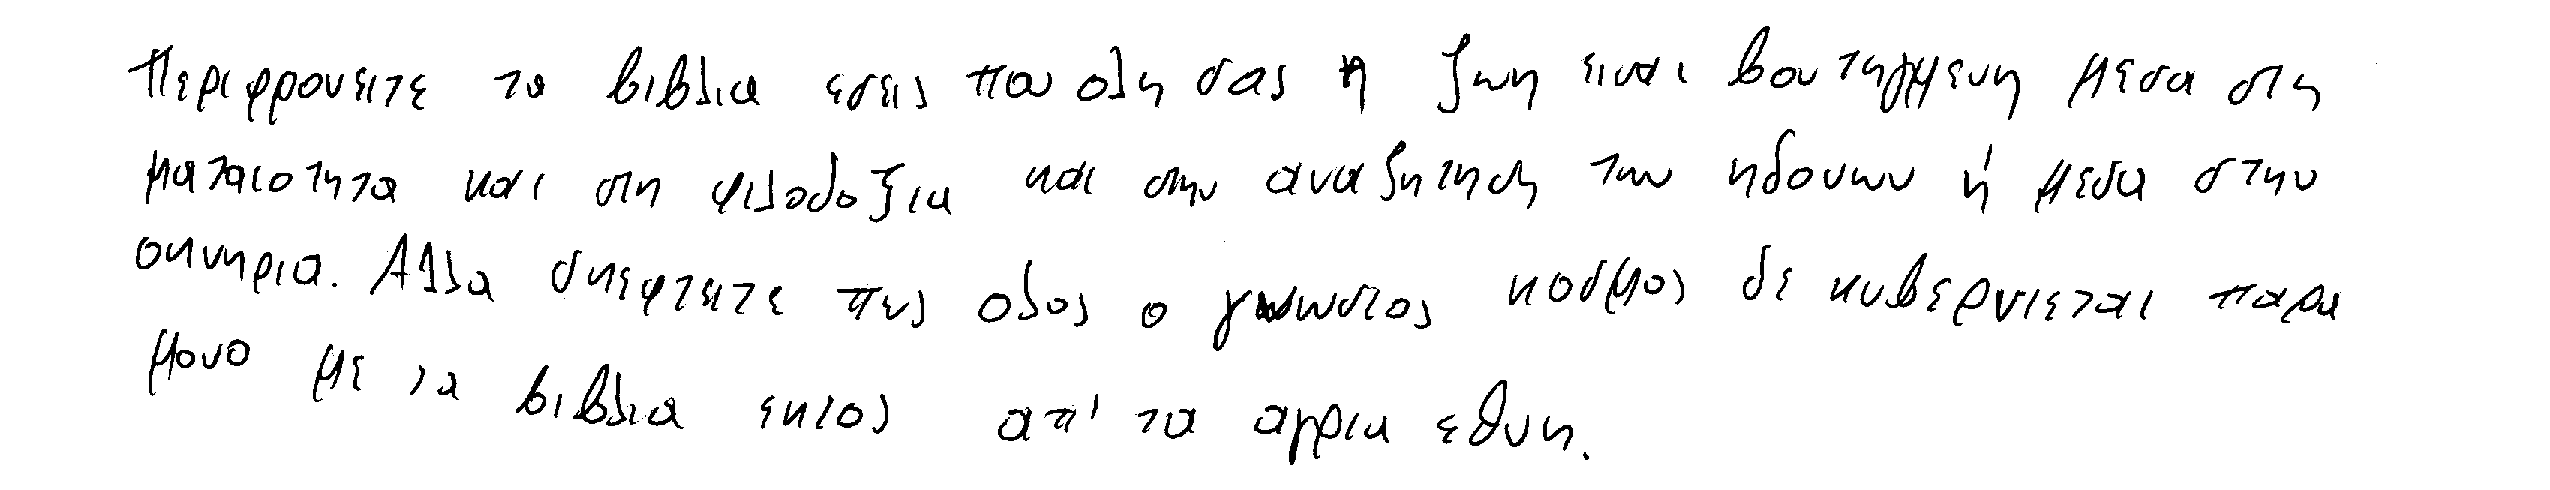 Περιφρονειτε τα βιβλια εσεις που ολη σας η ζωη ειναι βουτηγμενη μεσα στη
ματαιοτητα και στη φιλοδοξια και στην αναζητηση των ηδονων ή μεσα στην
οκνηρια. Αλλα σκεφτειτε πως ολος ο γνωστος κοσμος δε κυβερνιεται παρα
μονο με τα βιβλια εκτος απ' τα αγρια εθνη.